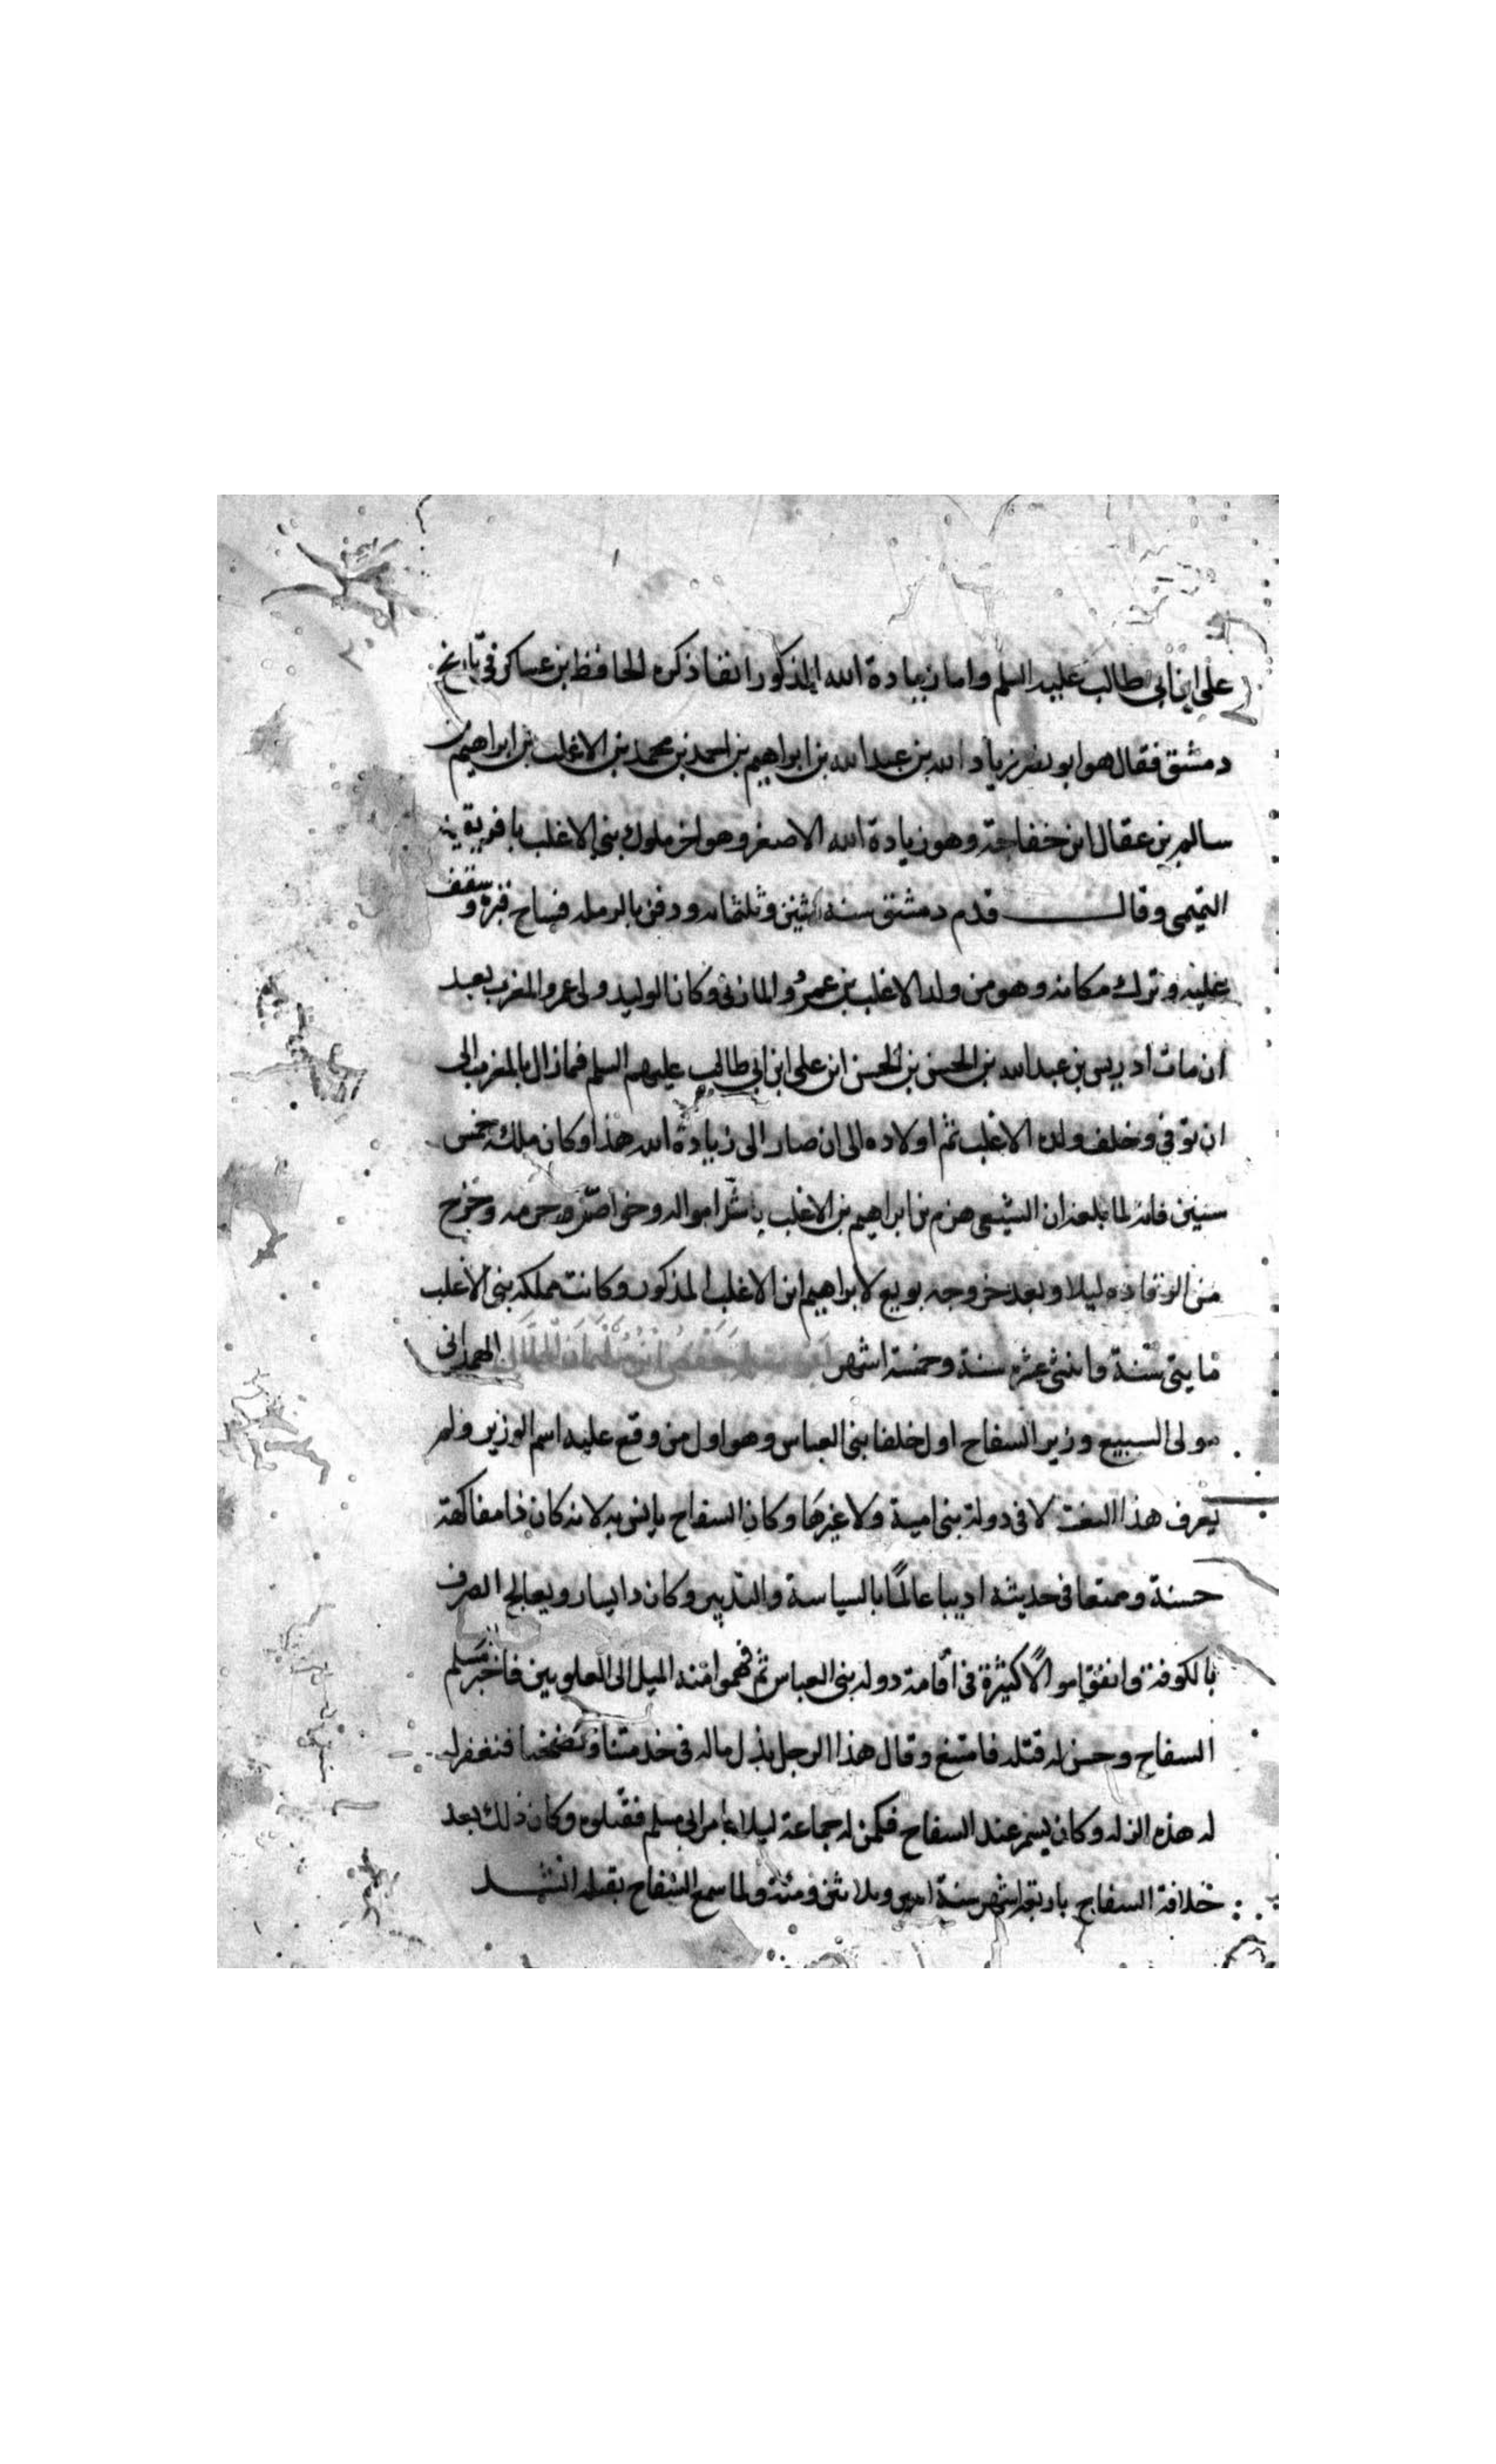 على ابن ابى طالب عليه السلم واما زيادة الله المذكور انفا ذكره الحافظ بن عساكر فى تاريخ
دمشق فقال هو ابو نصر زياد الله بن عبد الله بن ابراهيم بن احمد بن محمد بن الاغلب بن ابراهيم بن
سالم بن عقال ابن خفاجة وهو زيادة الله الاصغر وهو اخر ملوك بنى الاغلب بافريقية
التميمى وقال قدم دمشق سنه اثنين وثلثمائه ودفن بالرمله فساح قبره وسقف
عليه وترك مكانه وهو من ولد الاغلب بن عمرو المازنى وكان الوليد ولى عمرو المغرب بعد
ان مات ادريس بن عبد الله بن الحسن بن الحسن ابن على ابن ابى طالب عليهم السلم فمازال بالمغرب الى
ان توفي وخلف ولده الاغلب ثم اولاده الى ان صار الى زيادة الله هذا وكان ملكه خمس
سنين فانه لما بلغه ان الشيعى هزم بن ابراهيم بن الاغلب امواله وخواصه وحرمه وخرج
من الرقاده ليلا وبعد خروجه بويع لابراهيم ابن الاغلب المذكور وكانت مملكه بنى الاغلب
مايتى سنة واثنى عشر سنة وخمسة اشهر ابو سلمة حفص ابن سليمان الخلال الهمدانى
مولى السبيع وزير السفاح اول خلفا بنى العباس وهو اول من وقع عليه اسم الوزير ولم
يعرف هذا النعت لا فى دولة بنى امية ولا غيرها وكان السفاح يانس به لانه كان ذا مفاكهة
حسنة وممتعا فى حديثه اديبا عالمًا بالسياسة والتدبير وكان ذا يسار ويعالج الصرف
بالكوفة وانفق اموالًا كثيرة فى اقامة دوله بنى العباس ثم فهموا منه الميل الى العلويين فاخبر مسلم
السفاح وحسن له قتله فامتنع وقال هذا الرجل بذل ماله فى خدمتنا ونصحنا فنغفر له
له هذه الزله وكان يسمر عند السفاح فكمن له جماعة ليلا بامر ابى مسلم فقتلوه وكان ذلك بعد
خلافة السفاح باربعة اشهر سنة وثلاثين ومئة ولما سمع السفاح بقتله انشد